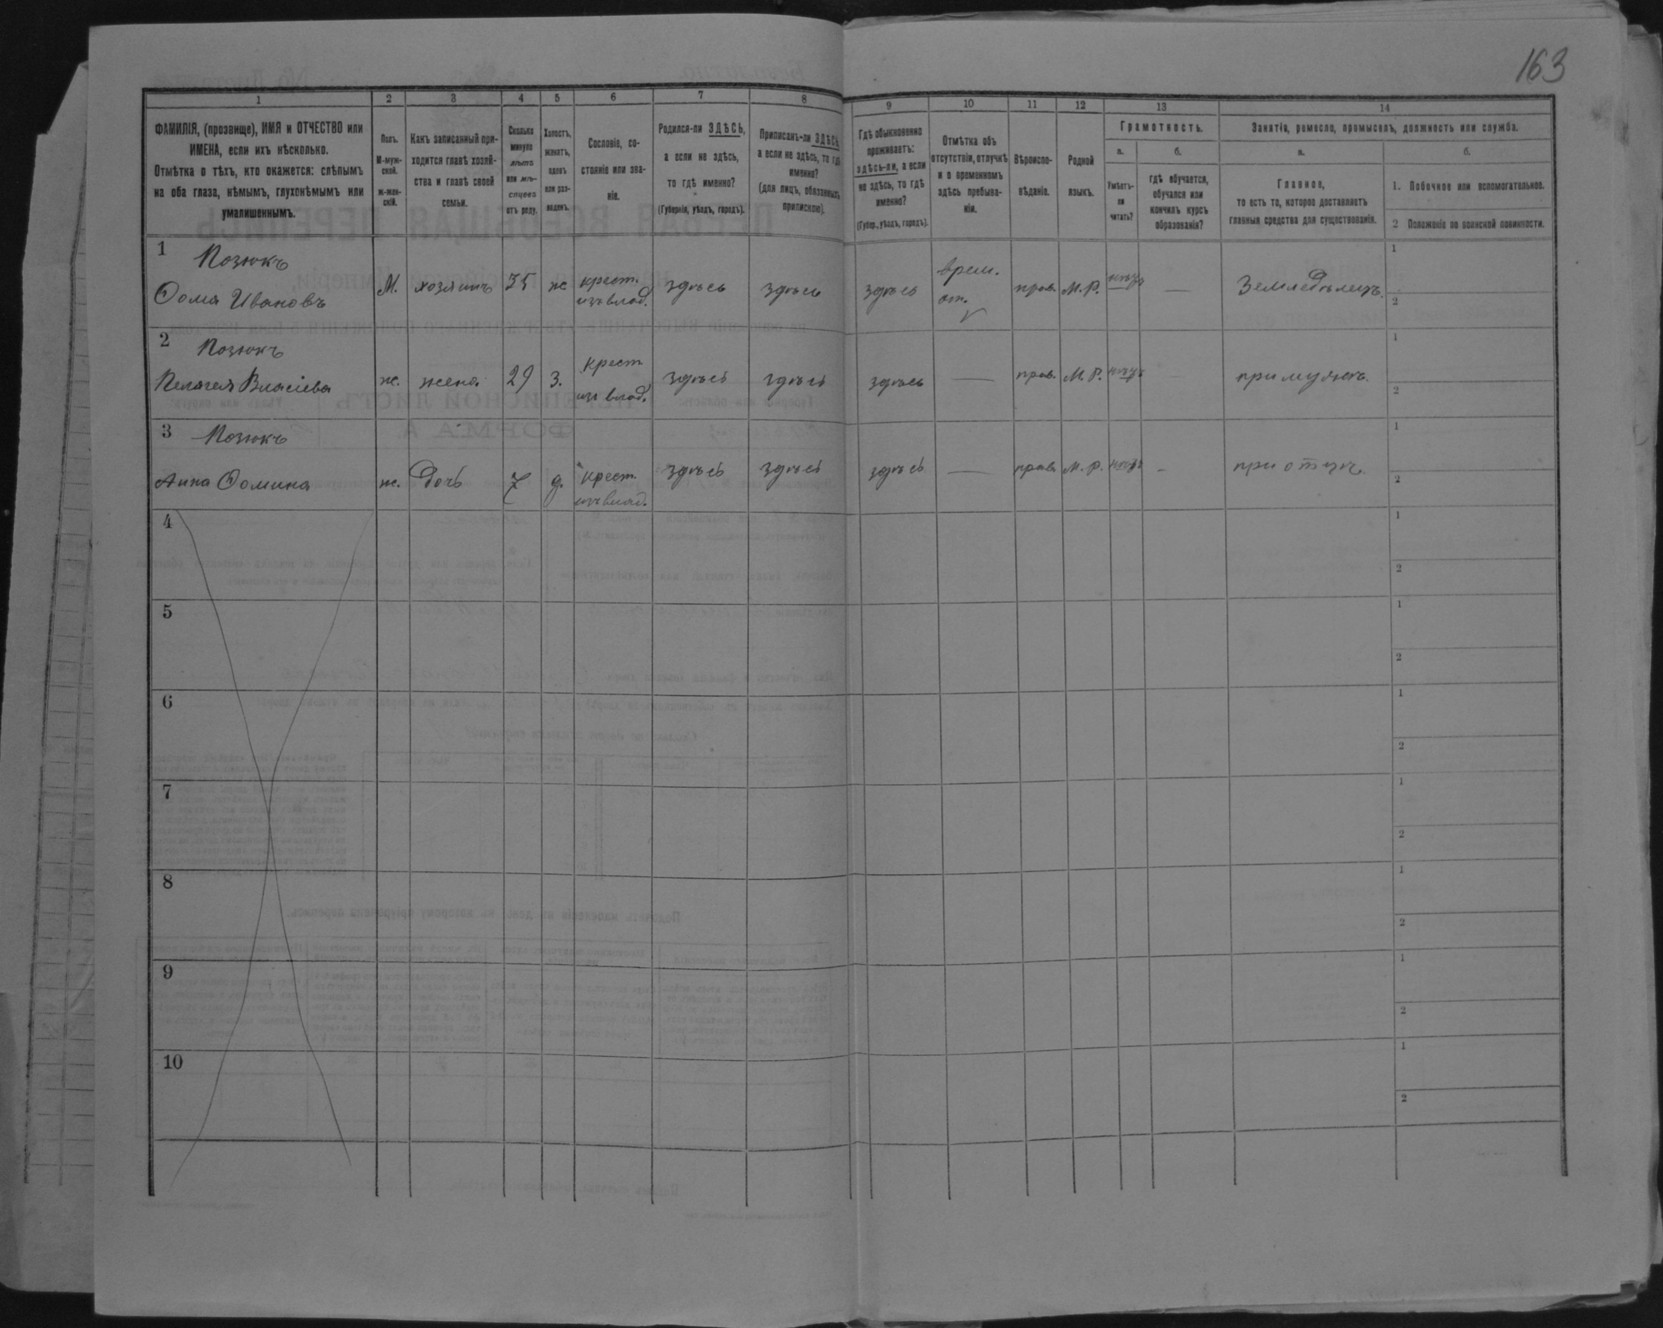 163
1 2 3 4 5 6 7 8 9 10 11 12 13 14
ФАМИЛІЯ, (прозвище), ИМЯ и ОТЧЕСТВО или
ИМЕНА, если ихъ нѣсколько.
Отмѣтка о тѣхъ, кто окажется: слѣпымъ
на оба глаза, нѣмымъ, глухонѣмымъ или
умалишеннымъ.
Полъ.
М-муж-
ской.
ж-жен-
скій.
Какъ записанный при-
ходится главѣ хозяй-
ства и главѣ своей
семьи.
Сколько
минуло
лѣтъ
или мѣ-
сяцевъ
отъ роду.
Холостъ,
женатъ,
вдовъ
или раз-
веденъ.
Сословіе, со-
стояніе или зва-
ніе.
Родился-ли ЗДѢСЬ,
а если не здѣсь,
то гдѣ именно?
(Губернія, уѣздъ, городъ).
Приписанъ-ли ЗДѢСЬ,
а если не здѣсь, то гдѣ
именно?
(для лицъ, обязанныхъ
припискою).
Гдѣ обыкновенно
проживаетъ:
здѣсь-ли, а если
не здѣсь, то гдѣ
именно?
(Губер., уѣздъ, городъ).
Отмѣтка объ
отсутствіи, отлучкѣ
и о временномъ
здѣсь пребыва-
ніи.
Вѣроиспо-
вѣданіе.
Родной
языкъ.
Грамотность.
а.
Умѣетъ-
ли
читать?
б.
гдѣ обучается,
обучался или
кончилъ курсъ
образованія?
Занятія, ремесло, промыселъ, должность или служба.
а.
Главное,
то есть то, которое доставляетъ
главныя средства для существованія.
б.
1. Побочное или вспомогательное.
2 Положеніе по воинской повинности.
1 Позюкъ
Ѳома Ивановъ
М. хозяинъ 35 ж крест. изъ влад. здѣсь здѣсь здѣсь врем. от. прав. М. Р. — Земледѣлецъ.
1
2
2 Позюкъ
Пелагея Власіева
ж. жена 29 З. крест изъ влад. здѣсь здѣсь здѣсь — прав. М. Р. — при мужѣ.
1
2
3 Позюкъ
Анна Ѳомина
ж. Дочь 7 д. крест изъ влад. здѣсь здѣсь здѣсь — прав. М. Р. — при отцѣ.
1
2
4
1
2
5
1
2
6
1
2
7
1
2
8
1
2
9
1
2
10
1
2